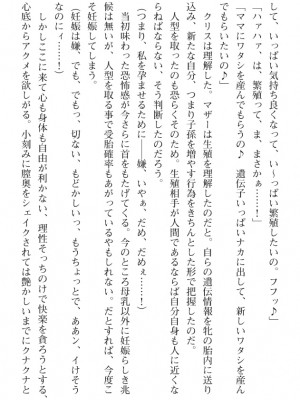 して、いっぱい気持ち良くなって、い～っぱい繁殖したいの。フフッ♪」
「ハァハァ、は、繁殖って、ま、まさかぁ…！」
「ママにワタシを産んでもらうの♪　遺伝子いっぱいナカに出して、新しいワタシを産ん
でもらいたいの♪」
　クリスは理解した。マザーは生殖を理解したのだと。自らの遺伝情報を牝の胎内に送り
込み、新たな自分、つまり子孫を増やす行為をきちんとした形で把握したのだ。
　人型を取ったのも恐らくそのため。生殖相手が人間であるならば自分自身も人に近くな
らねばならない、そう判断したのだろう。
（つまり、私を孕ませるために――嫌、いやぁ、だめ、だめぇ……！）
　当初味わった恐怖感が今さらに首をもたげてくる。今のところ母乳以外に妊娠らしき兆
候は無いが、人型を取る事で受胎確率もあがっているやもしれない。だとすれば、今度こ
そ妊娠してしまう。
（妊娠は嫌、でも、でもっ、切ない、もどかしいっ、もうちょっとで、ああン、イけそう
なのにィ……！）
　しかしここに来て心も身体も自由が利かない、理性そっちのけで快楽を貪ろうとする。
心底からアクメを欲しがる。小刻みに膣奥をシェイクされては艶かしいまでにクナクナと